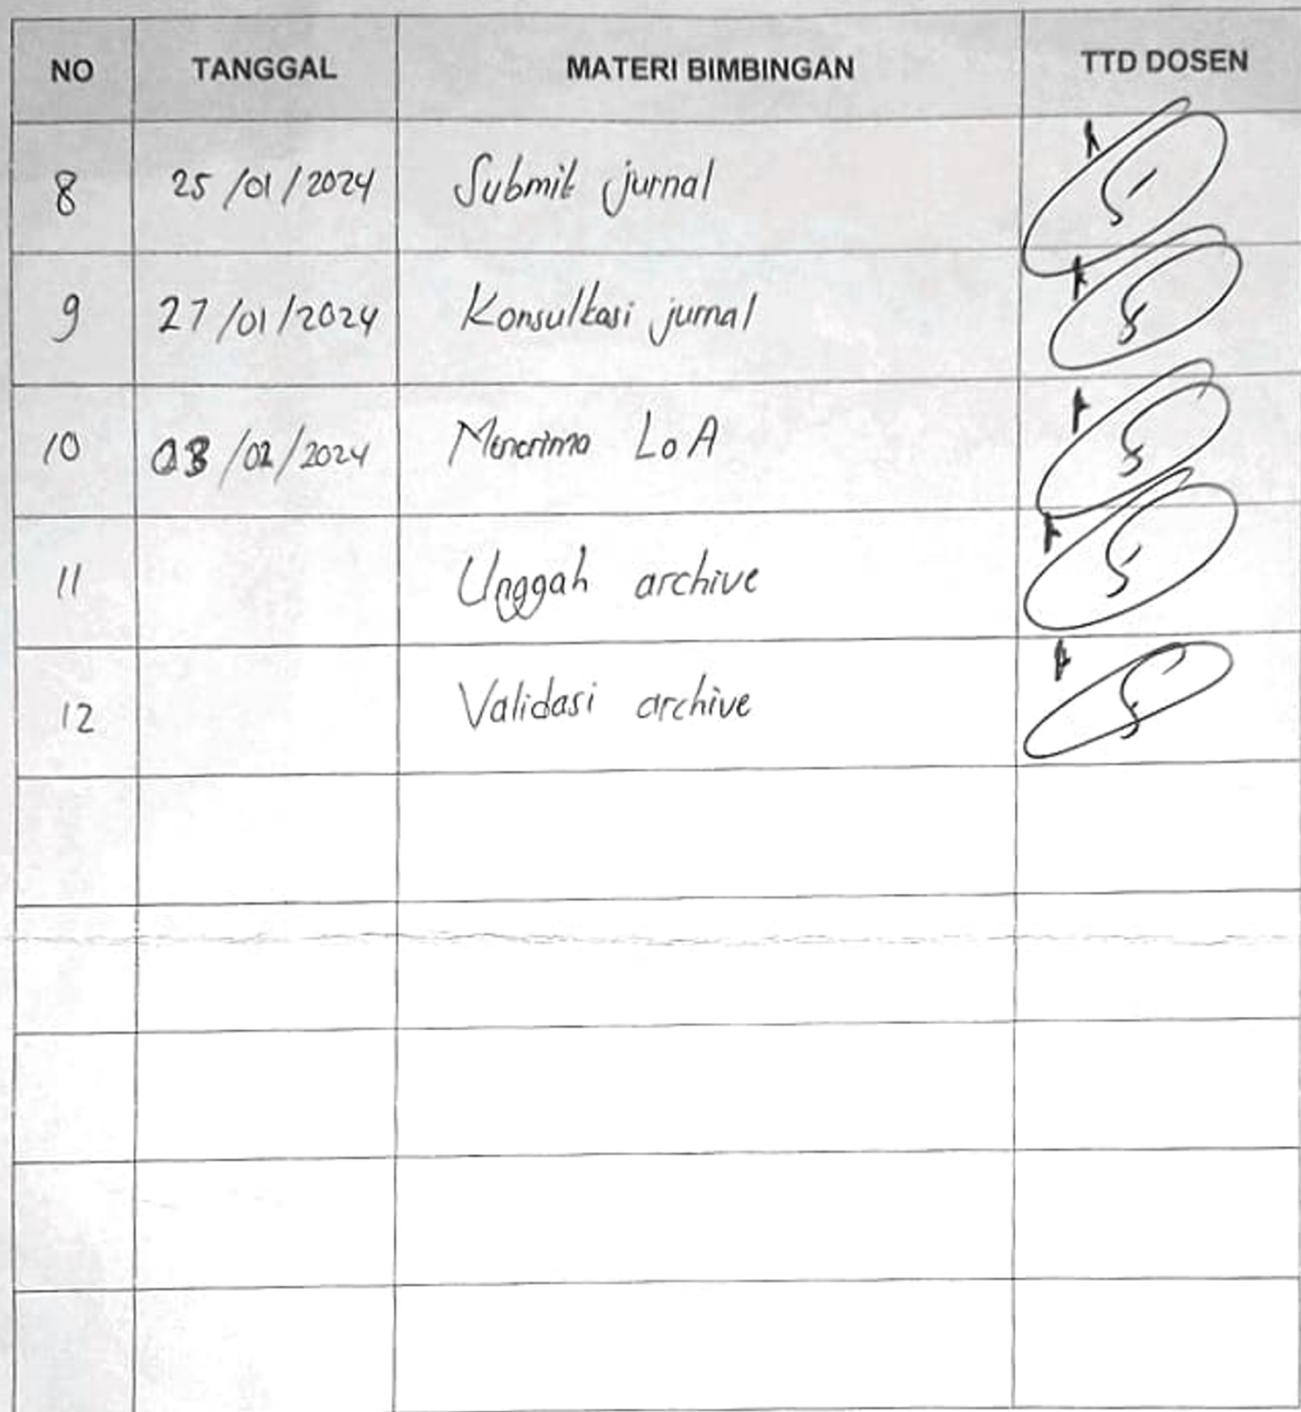 NO TANGGAL MATERI BIMBINGAN TTD DOSEN
8 25/01/2024 Submit jurnal
9 27/01/2024 Konsultasi jurnal
10 03/02/2024 Menerima LoA
11 Unggah archive
12 Validasi archive